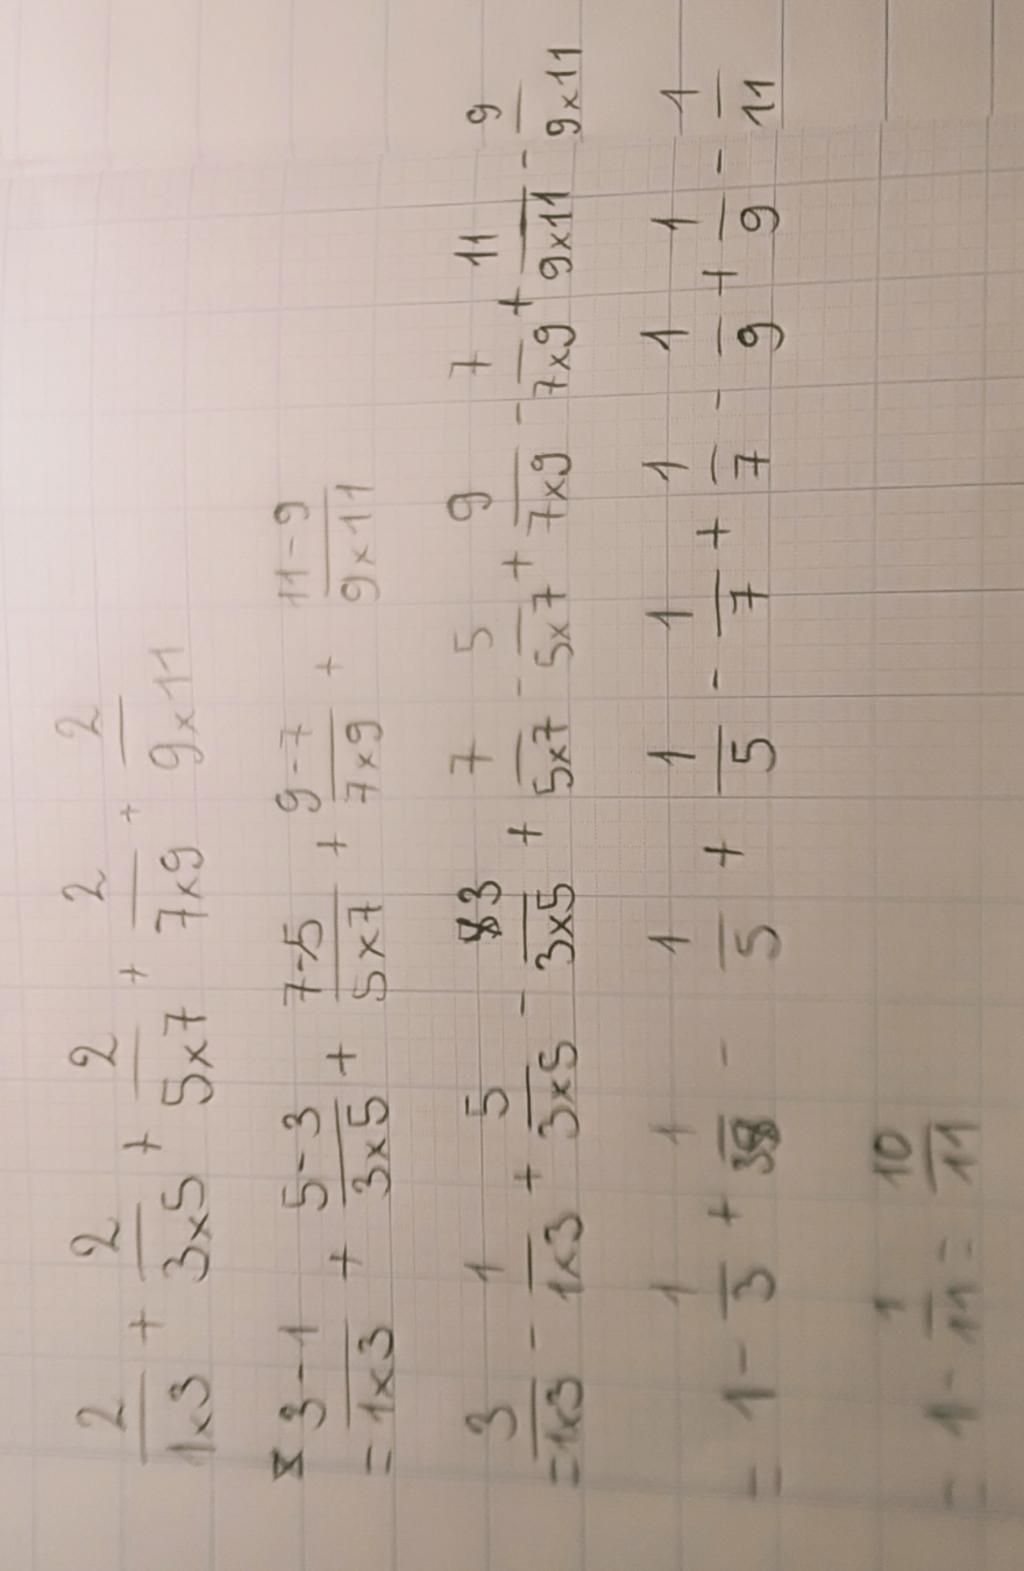 2/1x3 + 2/3x5 + 2/5x7 + 2/7x9 + 2/9x11
= 3-1/1x3 + 5-3/3x5 + 7-5/5x7 + 9-7/7x9 + 11-9/9x11
= 3/1x3 - 1/1x3 + 5/3x5 - 3/3x5 + 7/5x7 - 5/5x7 + 9/7x9 - 7/7x9 + 11/9x11 - 9/9x11
= 1 - 1/3 + 1/3 - 1/5 + 1/5 - 1/7 + 1/7 - 1/9 + 1/9 - 1/11
= 1 - 1/11 = 10/11